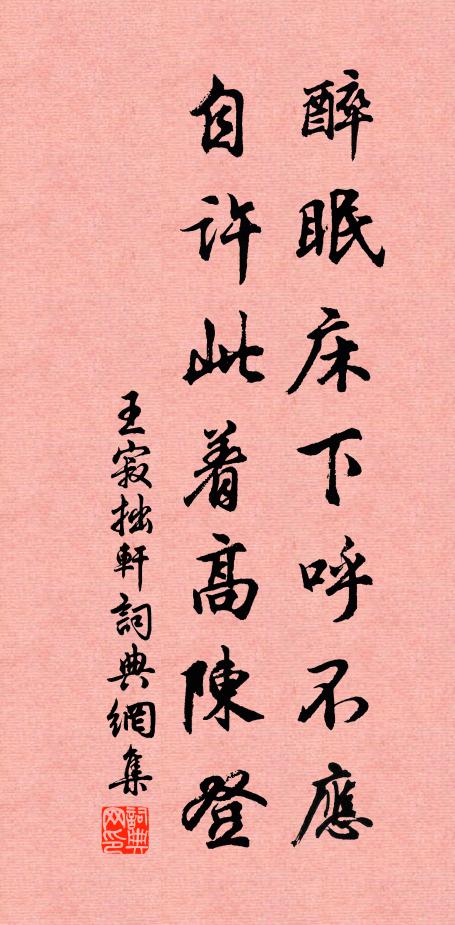 醉眠床下呼不應
自許此着高陳登
王寂拙軒詞典網集
詞典网印